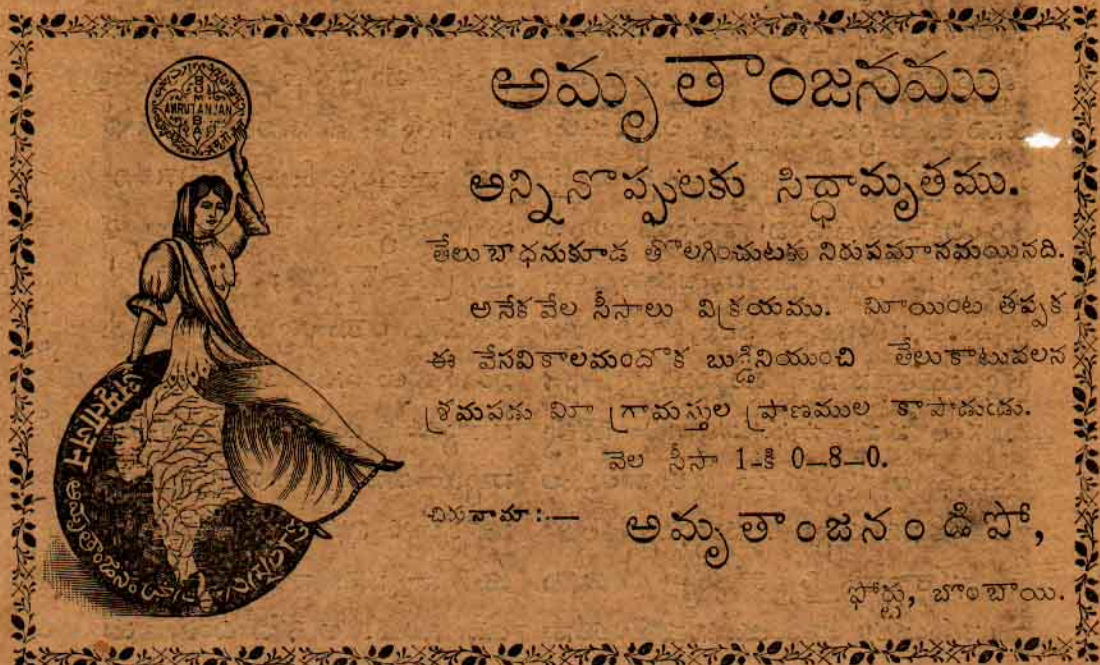 BOMBAY
AMRUTANJAN
అమృతాంజనము
అన్ని నొప్పులకు సిద్ధామృతము.
తేలు బాధనుకూడ తొలగించుటకు నిరుపమానమయినది.
అనేక వేల సీసాలు విక్రయము. మీయింట తప్పక
ఈ వేసవికాలమందొక బుడ్డినియుంచి తేలుకాటువలన
శ్రమపడు మీ గ్రామస్తుల ప్రాణముల కాపాడుడు.
వెల సీసా 1-కి 0—8—0.
చిరునామా :— అమృతాంజనం డిపో,
ఫోర్టు, బొంబాయి.
అమృతాంజనం